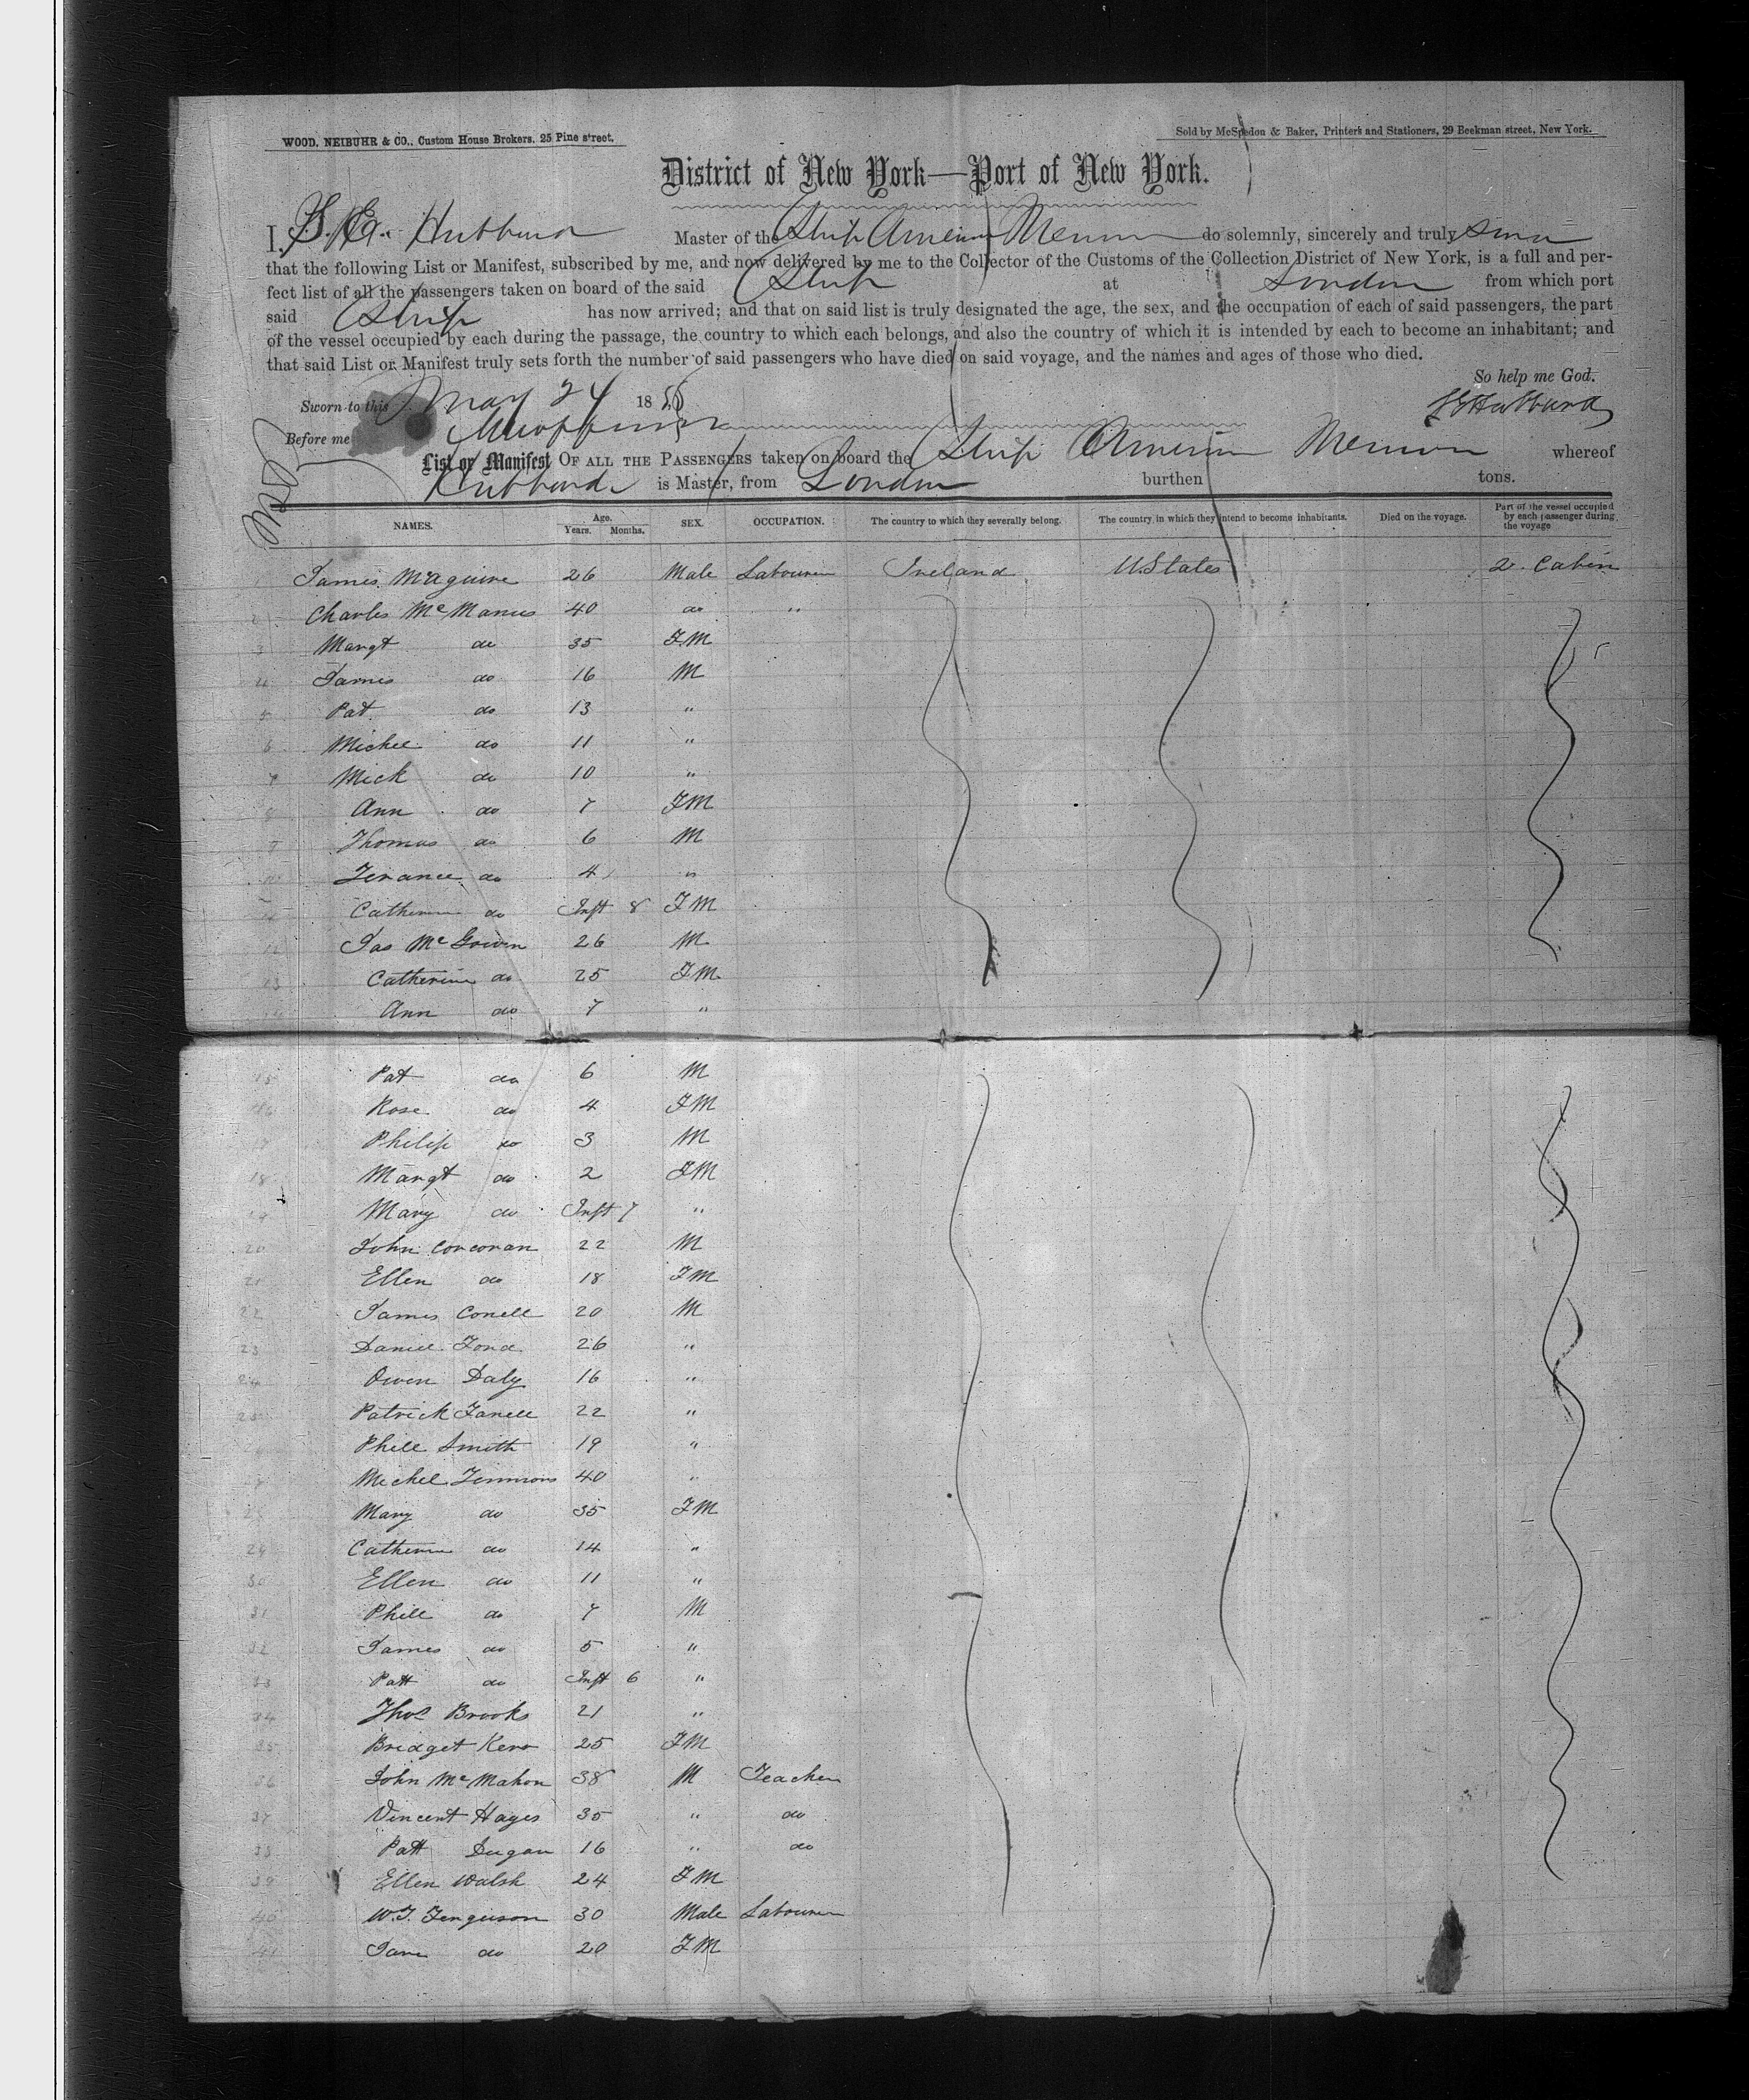 WOOD, NEIBUHR & CO., Custom House Brokers, 25 Pine street.
Sold by McSpedon & Baker, Printers and Stationers, 29 Beekman street, New York.
District of New York—Port of New York.
I, Hubbard Master of the Ship do solemnly, sincerely and truly
that the following List or Manifest, subscribed by me, and now delivered by me to the Collector of the Customs of the Collection District of New York, is a full and per-
fect list of all the passengers taken on board of the said Ship at London from which port
said Ship has now arrived; and that on said list is truly designated the age, the sex, and the occupation of each of said passengers, the part
of the vessel occupied by each during the passage, the country to which each belongs, and also the country of which it is intended by each to become an inhabitant; and
that said List or Manifest truly sets forth the number of said passengers who have died on said voyage, and the names and ages of those who died.
So help me God.
Sworn to this May 24 1855
Hubbard
Before me
List or Manifest OF ALL THE PASSENGERS taken on board the Ship whereof
Hubbard is Master, from London burthen tons.
NAMES. Age. Years. Months. SEX. OCCUPATION. The country to which they severally belong. The country in which they intend to become inhabitants. Died on the voyage. Part of the vessel occupied by each passenger during the voyage
1 James McGuire 26 Male Labourer Ireland U.States 2. Cabin
2 Charles McManus 40 do "
3 Margt do 35 FM
4 James do 16 M
5 Pat do 13 "
6 Michel do 11 "
7 Mick do 10 "
8 Ann do 7 FM
9 Thomas do 6 M
10 Terance do 4 "
11 Catherine do Inft 8 FM
12 Jas McGowen 26 M
13 Catherine do 25 FM
14 Ann do 7 "
15 Pat do 6 M
16 Rose do 4 FM
17 Philip do 3 M
18 Margt do 2 FM
19 Mary do Inft 7 "
20 John Corcoran 22 M
21 Ellen do 18 FM
22 James Conell 20 M
23 Daniel Ford 26 "
24 Owen Daly 16 "
25 Patrick Farrell 22 "
Phill Smith 19 "
27 Michel Timmons 40 "
28 Mary do 35 FM
29 Catherine do 14 "
30 Ellen do 11 "
31 Phill do 7 M
32 James do 5 "
33 Patt do Inft 6 "
34 Thos Brooks 21 "
35 Bridget Kerr 25 FM
36 John McMahon 38 M Teacher
37 Vincent Hayes 35 " do
38 Patt Dugan 16 " do
39 Ellen Walsh 24 FM
40 W.J. Ferguson 30 Male Labourer
41 Jane do 20 FM